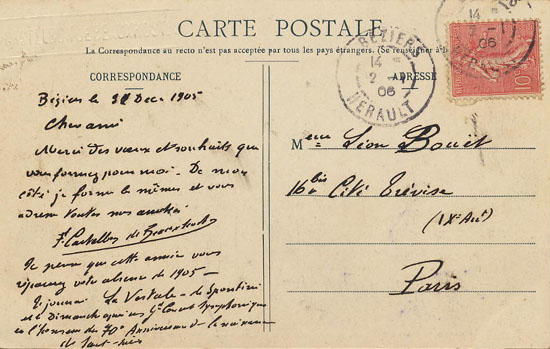 CARTE POSTALE
La Correspondance au recto n'est pas acceptée par tous les pays étrangers. (Se renseigner à
CORRESPONDANCE
ADRESSE
BÉZIERS
14
2 - 1
06
HERAULT
14
2 - 1
06
10
Béziers le 31 Dec. 1905
Cher ami
Merci des vœux et souhaits que
vous formez pour moi. De mon
côté je forme les mêmes et vous
adresse toutes nos amitiés
F. Castelbon de
Je pense que cette année vous
réparerez votre absence de 1905 -
La Vestale - de Spontini
et le dimanche un Gd Concert Symphonique
en l'honneur du 70e Anniversaire de la naissance
de Saint-Saëns
M Léon Bouët
16 bis Cité Trévise
(IXe Arrt)
Paris